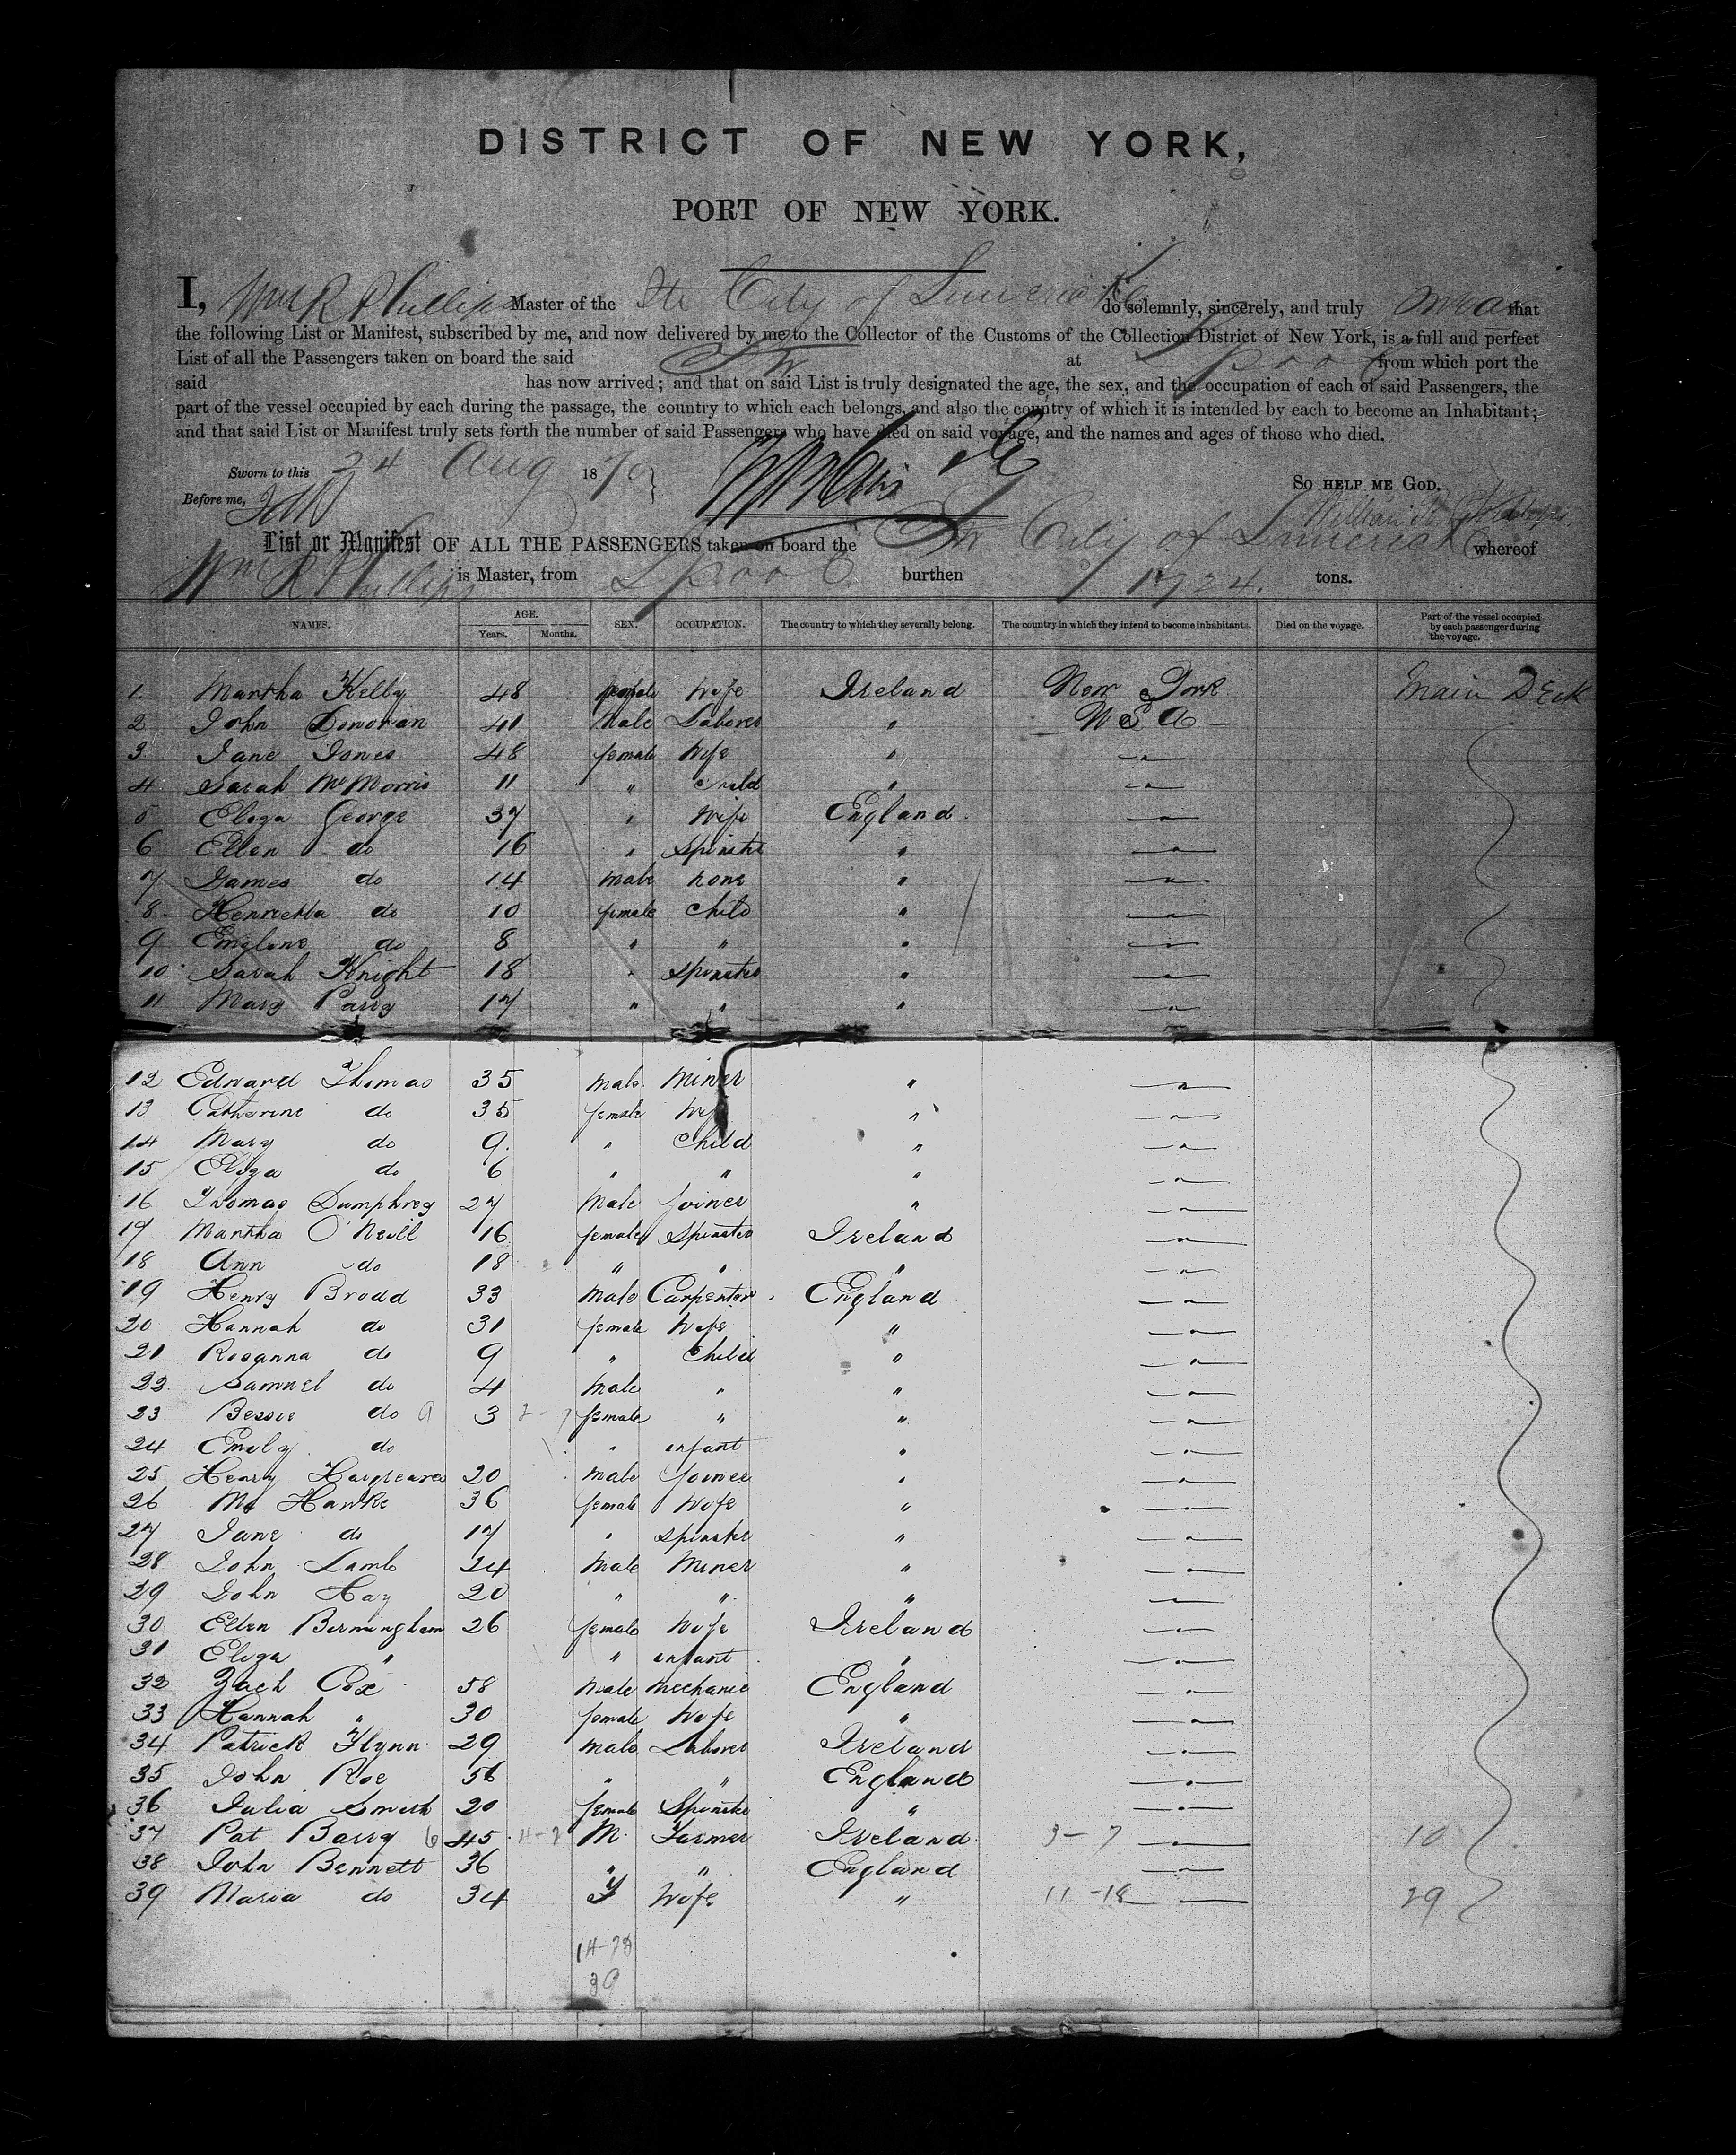 DISTRICT OF NEW YORK,
PORT OF NEW YORK.
I, Wm R Phillips Master of the Str City of Limerick do solemnly, sincerely, and truly swear that
the following List or Manifest, subscribed by me, and now delivered by me to the Collector of the Customs of the Collection District of New York, is a full and perfect
List of all the Passengers taken on board the said Str at Lpool from which port the
said has now arrived; and that on said List is truly designated the age, the sex, and the occupation of each of said Passengers, the
part of the vessel occupied by each during the passage, the country to which each belongs, and also the country of which it is intended by each to become an Inhabitant;
and that said List or Manifest truly sets forth the number of said Passengers who have died on said voyage, and the names and ages of those who died.
Sworn to this 24 Aug 1870
So help me God.
Before me,
William R Phillips
List or Manifest OF ALL THE PASSENGERS taken on board the Str City of Limerick whereof
Wm R Phillips is Master, from Lpool burthen 1724. tons.
NAMES. AGE. Years. Months. SEX. OCCUPATION. The country to which they severally belong. The country in which they intend to become inhabitants. Died on the voyage. Part of the vessel occupied by each passenger during the voyage.
1 Martha Kelly 48 female Wife Ireland New York Main Deck
2 John Donovan 41 Male Laborer " U S A
3 Jane Jones 48 female Wife " "
4 Sarah McMorris 11 " Child " "
5 Eliza George 37 " Wife England "
6 Ellen do 16 " Spinster " "
7 James do 14 male none " "
8 Henrietta do 10 female Child " "
9 Emeline do 8 " " " "
10 Sarah Knight 18 " Spinster " "
11 Mary Parry 17 " " " "
12 Edward Thomas 35 male Miner " "
13 Catherine do 35 female Wife " "
14 Mary do 9 " Child " "
15 Eliza do 6 " " " "
16 Thomas Dumphrey 27 Male Joiner " "
17 Martha O'Neill 16 female Spinster Ireland "
18 Ann do 18 " " " "
19 Henry Brodd 33 Male Carpenter England "
20 Hannah do 31 female Wife " "
21 Rosanna do 9 " Child " "
22 Samuel do 4 Male " " "
23 Bessie do 3 female " " "
24 Emily do " infant " "
25 Henry Hargreaves 20 Male Joiner " "
26 Ms Hawke 36 female Wife " "
27 Jane do 17 " Spinster " "
28 John Lamb 24 Male Miner " "
29 John Hay 20 " " " "
30 Ellen Birmingham 26 female Wife Ireland "
31 Eliza " " infant " "
32 Zach Cox 58 Male Mechanic England "
33 Hannah " 30 female Wife " "
34 Patrick Flynn 29 Male Laborer Ireland "
35 John Roe 56 " " England "
36 Julia Smith 20 female Spinster " "
37 Pat Barry 6 45 4-2 M. Farmer Ireland 3-7 " 10
38 John Bennett 36 " " England "
39 Maria do 34 F Wife " 11-18 29
14-28
39